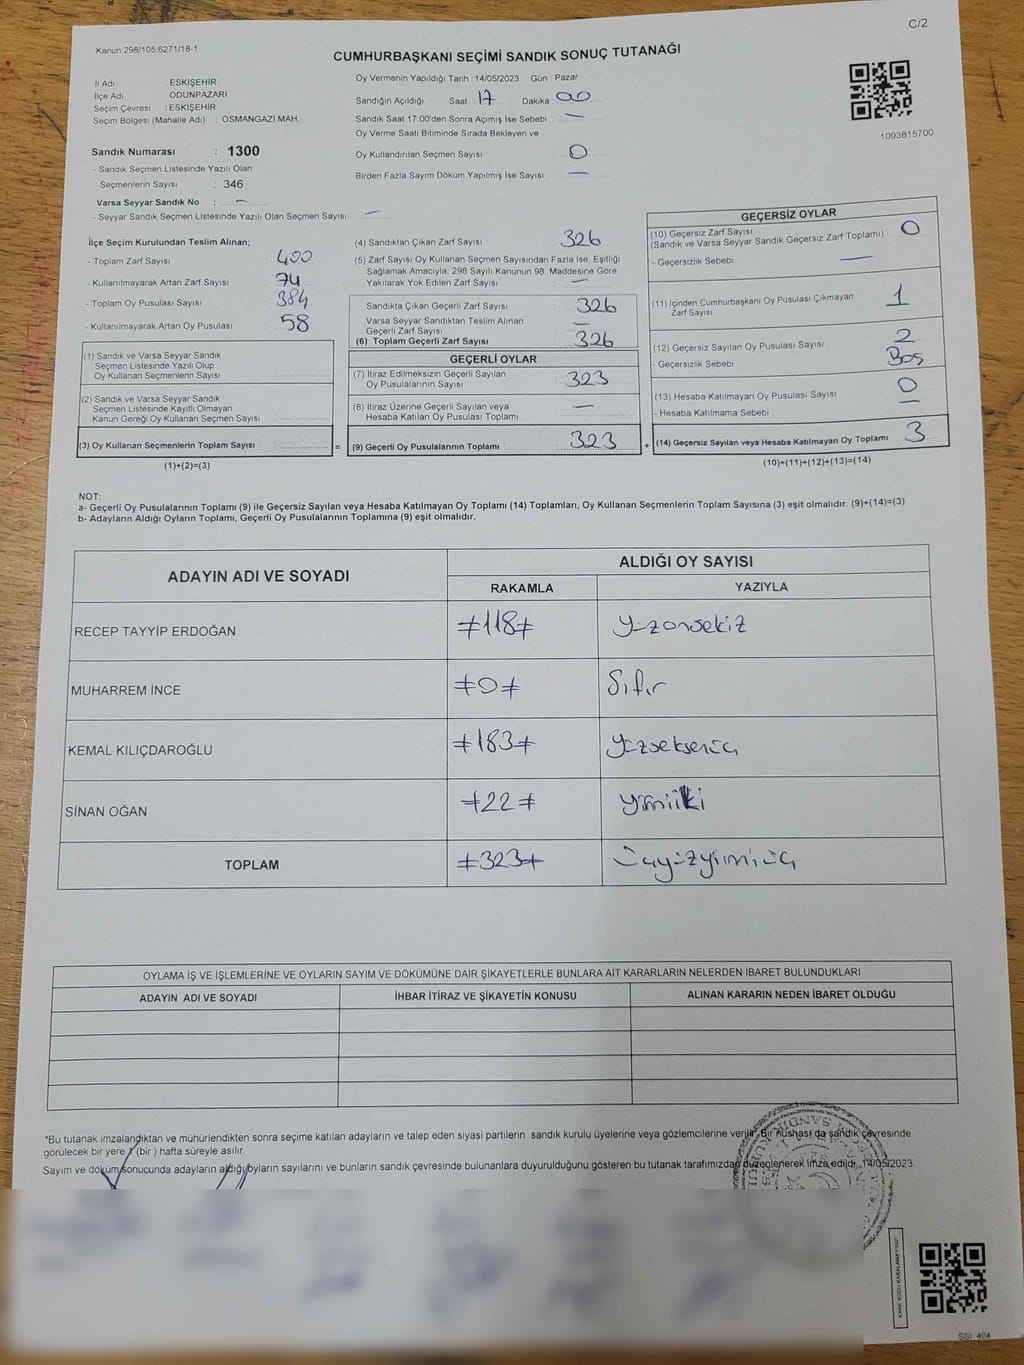 C/2
Kanun:298/105:6271/18-1
CUMHURBAŞKANI SEÇİMİ SANDIK SONUÇ TUTANAĞI
İl Adı : ESKİŞEHİR
İlçe Adı : ODUNPAZARI
Seçim Çevresi : ESKİŞEHİR
Seçim Bölgesi (Mahalle Adı) : OSMANGAZİ MAH.
Oy Vermenin Yapıldığı Tarih :14/05/2023 Gün : Pazar
Sandığın Açıldığı Saat :17 Dakika :00
Sandık Saat 17:00'den Sonra Açımış İse Sebebi : —
Oy Verme Saati Bitiminde Sırada Bekleyen ve
Oy Kullandırılan Seçmen Sayısı : 0
Birden Fazla Sayım Döküm Yapılmış İse Sayısı : —
1093815700
Sandık Numarası : 1300
- Sandık Seçmen Listesinde Yazılı Olan
Seçmenlerin Sayısı : 346
Varsa Seyyar Sandık No : —
- Seyyar Sandık Seçmen Listesinde Yazılı Olan Seçmen Sayısı: —
İlçe Seçim Kurulundan Teslim Alınan;
- Toplam Zarf Sayısı : 400
- Kullanılmayarak Artan Zarf Sayısı : 74
- Toplam Oy Pusulası Sayısı : 384
- Kullanılmayarak Artan Oy Pusulası : 58
(1) Sandık ve Varsa Seyyar Sandık
Seçmen Listesinde Yazılı Olup
Oy Kullanan Seçmenlerin Sayısı :
(2) Sandık ve Varsa Seyyar Sandık
Seçmen Listesinde Kayıtlı Olmayan
Kanun Gereği Oy Kullanan Seçmen Sayısı :
(3) Oy Kullanan Seçmenlerin Toplam Sayısı :
(1)+(2)=(3)
=
(4) Sandıktan Çıkan Zarf Sayısı : 326
(5) Zarf Sayısı Oy Kullanan Seçmen Sayısından Fazla İse, Eşitliği
Sağlamak Amacıyla; 298 Sayılı Kanunun 98. Maddesine Göre
Yakılarak Yok Edilen Zarf Sayısı : —
Sandıkta Çıkan Geçerli Zarf Sayısı : 326
Varsa Seyyar Sandıktan Teslim Alınan
Geçerli Zarf Sayısı : —
(6) Toplam Geçerli Zarf Sayısı : 326
GEÇERLİ OYLAR
(7) İtiraz Edilmeksizin Geçerli Sayılan
Oy Pusulalarının Sayısı : 323
(8) İtiraz Üzerine Geçerli Sayılan veya
Hesaba Katılan Oy Pusulası Toplamı : —
(9) Geçerli Oy Pusulalarının Toplamı : 323
+
GEÇERSİZ OYLAR
(10) Geçersiz Zarf Sayısı : 0
(Sandık ve Varsa Seyyar Sandık Geçersiz Zarf Toplamı)
- Geçersizlik Sebebi : —
(11) İçinden Cumhurbaşkanı Oy Pusulası Çıkmayan
Zarf Sayısı : 1
(12) Geçersiz Sayılan Oy Pusulası Sayısı : 2
- Geçersizlik Sebebi : Boş
(13) Hesaba Katılmayan Oy Pusulası Sayısı : 0
- Hesaba Katılmama Sebebi : —
(14) Geçersiz Sayılan veya Hesaba Katılmayan Oy Toplamı : 3
(10)+(11)+(12)+(13)=(14)
NOT:
a- Geçerli Oy Pusulalarının Toplamı (9) ile Geçersiz Sayılan veya Hesaba Katılmayan Oy Toplamı (14) Toplamları, Oy Kullanan Seçmenlerin Toplam Sayısına (3) eşit olmalıdır. (9)+(14)=(3)
b- Adayların Aldığı Oyların Toplamı, Geçerli Oy Pusulalarının Toplamına (9) eşit olmalıdır.
ADAYIN ADI VE SOYADI
ALDIĞI OY SAYISI
RAKAMLA YAZIYLA
RECEP TAYYİP ERDOĞAN ≠118≠ Yüzonsekiz
MUHARREM İNCE ≠0≠ Sıfır
KEMAL KILIÇDAROĞLU ≠183≠ Yüzseksenüç
SİNAN OĞAN ≠22≠ Yirmiiki
TOPLAM ≠323≠ Üçyüzyirmiüç
OYLAMA İŞ VE İŞLEMLERİNE VE OYLARIN SAYIM VE DÖKÜMÜNE DAİR ŞİKAYETLERLE BUNLARA AİT KARARLARIN NELERDEN İBARET BULUNDUKLARI
ADAYIN ADI VE SOYADI İHBAR İTİRAZ VE ŞİKAYETİN KONUSU ALINAN KARARIN NEDEN İBARET OLDUĞU
*Bu tutanak imzalandıktan ve mühürlendikten sonra seçime katılan adayların ve talep eden siyasi partilerin sandık kurulu üyelerine veya gözlemcilerine verilir. Bir nüshası da sandık çevresinde
görülecek bir yere 1 (bir ) hafta süreyle asılır.
Sayım ve döküm sonucunda adayların aldığı oyların sayılarını ve bunların sandık çevresinde bulunanlara duyurulduğunu gösteren bu tutanak tarafımızdan düzenlenerek imza edildi. 14/05/2023
SSI 404